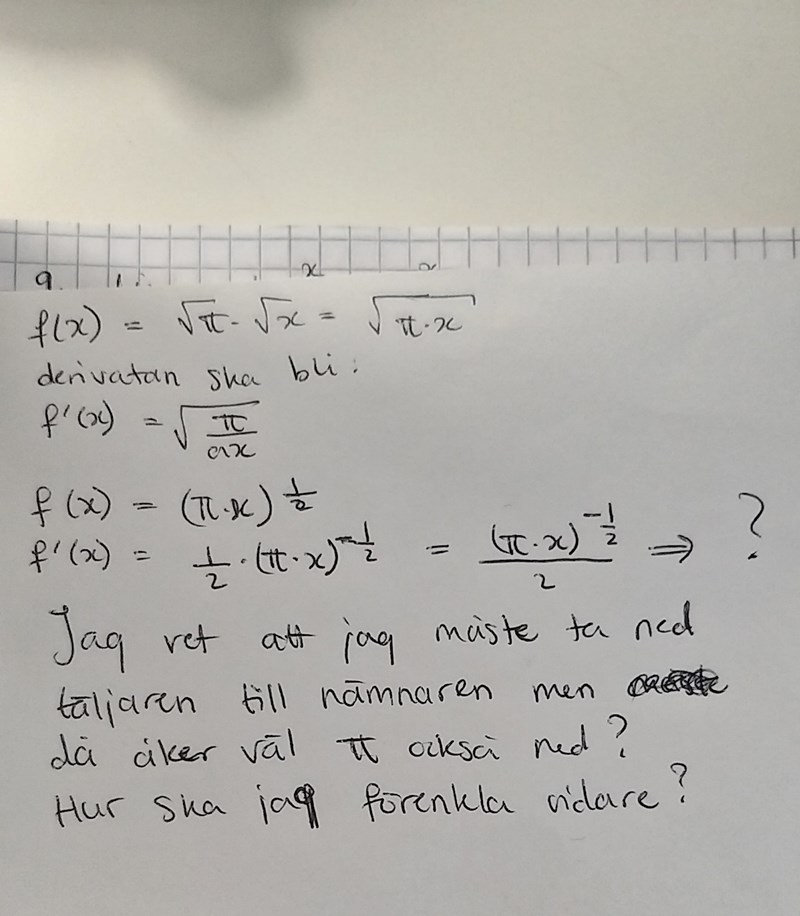 9.
f(x) = √π · √x = √(π·x)
derivatan ska bli:
f'(x) = √(π/ax)
f(x) = (π·x)^(1/2)
f'(x) = 1/2 · (π·x)^(-1/2) = (π·x)^(-1/2)/2 ⇒ ?
Jag vet att jag måste ta ned
täljaren till nämnaren men
då åker väl π också ned?
Hur ska jag förenkla vidare?